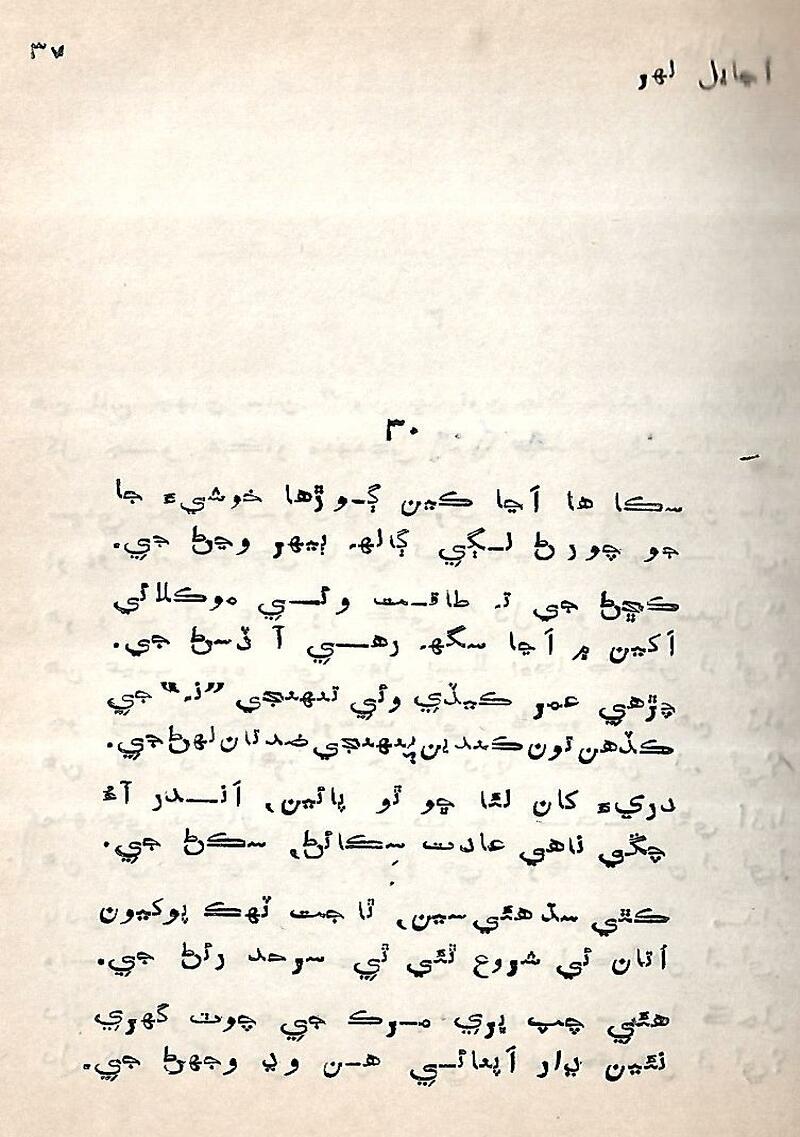 ٣٧
اڃايل لهر
٣٠
سڪا ها اڃا ڪين ڳوڙها خوشيءَ جا
جو چورڻ لڳي ڳالهه ٻيهر وڃڻ جي.
ڪڇڻ جي تہ طاقت وئي موڪلائي
اکين ۾ اڃا سگهه رهي آ ڏسڻ جي.
چڙهي عمر ڪيڏي وئي تنهنجي ”نہ“ جي
ڪڏهن تون ڪندين پنهنجي ضد تان لهڻ جي.
دريءَ کان لئا ڇو ٿو پائين، اندر آءُ
چڱي ناهي عادت سڪائڻ، سڪڻ جي.
ڪٿي سڌ هئي سين، ٿا جت ٽهڪ پوکيون
اتان ئي شروع ٿئي ٿي سرحد رئڻ جي.
هئي چپ ڀري مرڪ جي چوٽ گهري
نئين ڍار اپنائي هن وڍ وجهڻ جي.